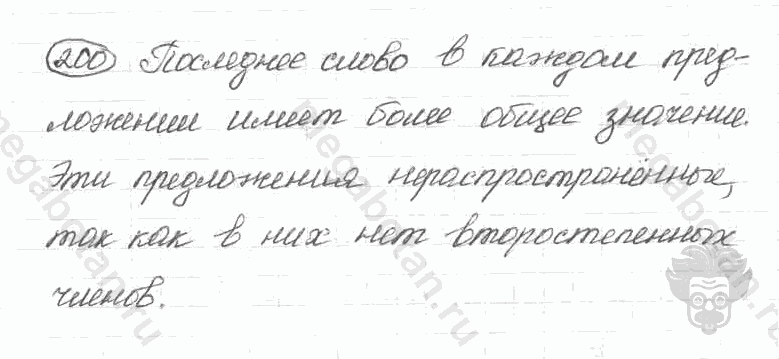 200 Последнее слово в каждом пред-
ложении имеет более общее значение.
Эти предложения нераспространённые,
так как в них нет второстепенных
членов.
megabotan.ru
megabotan.ru
megabotan.ru
megabotan.ru